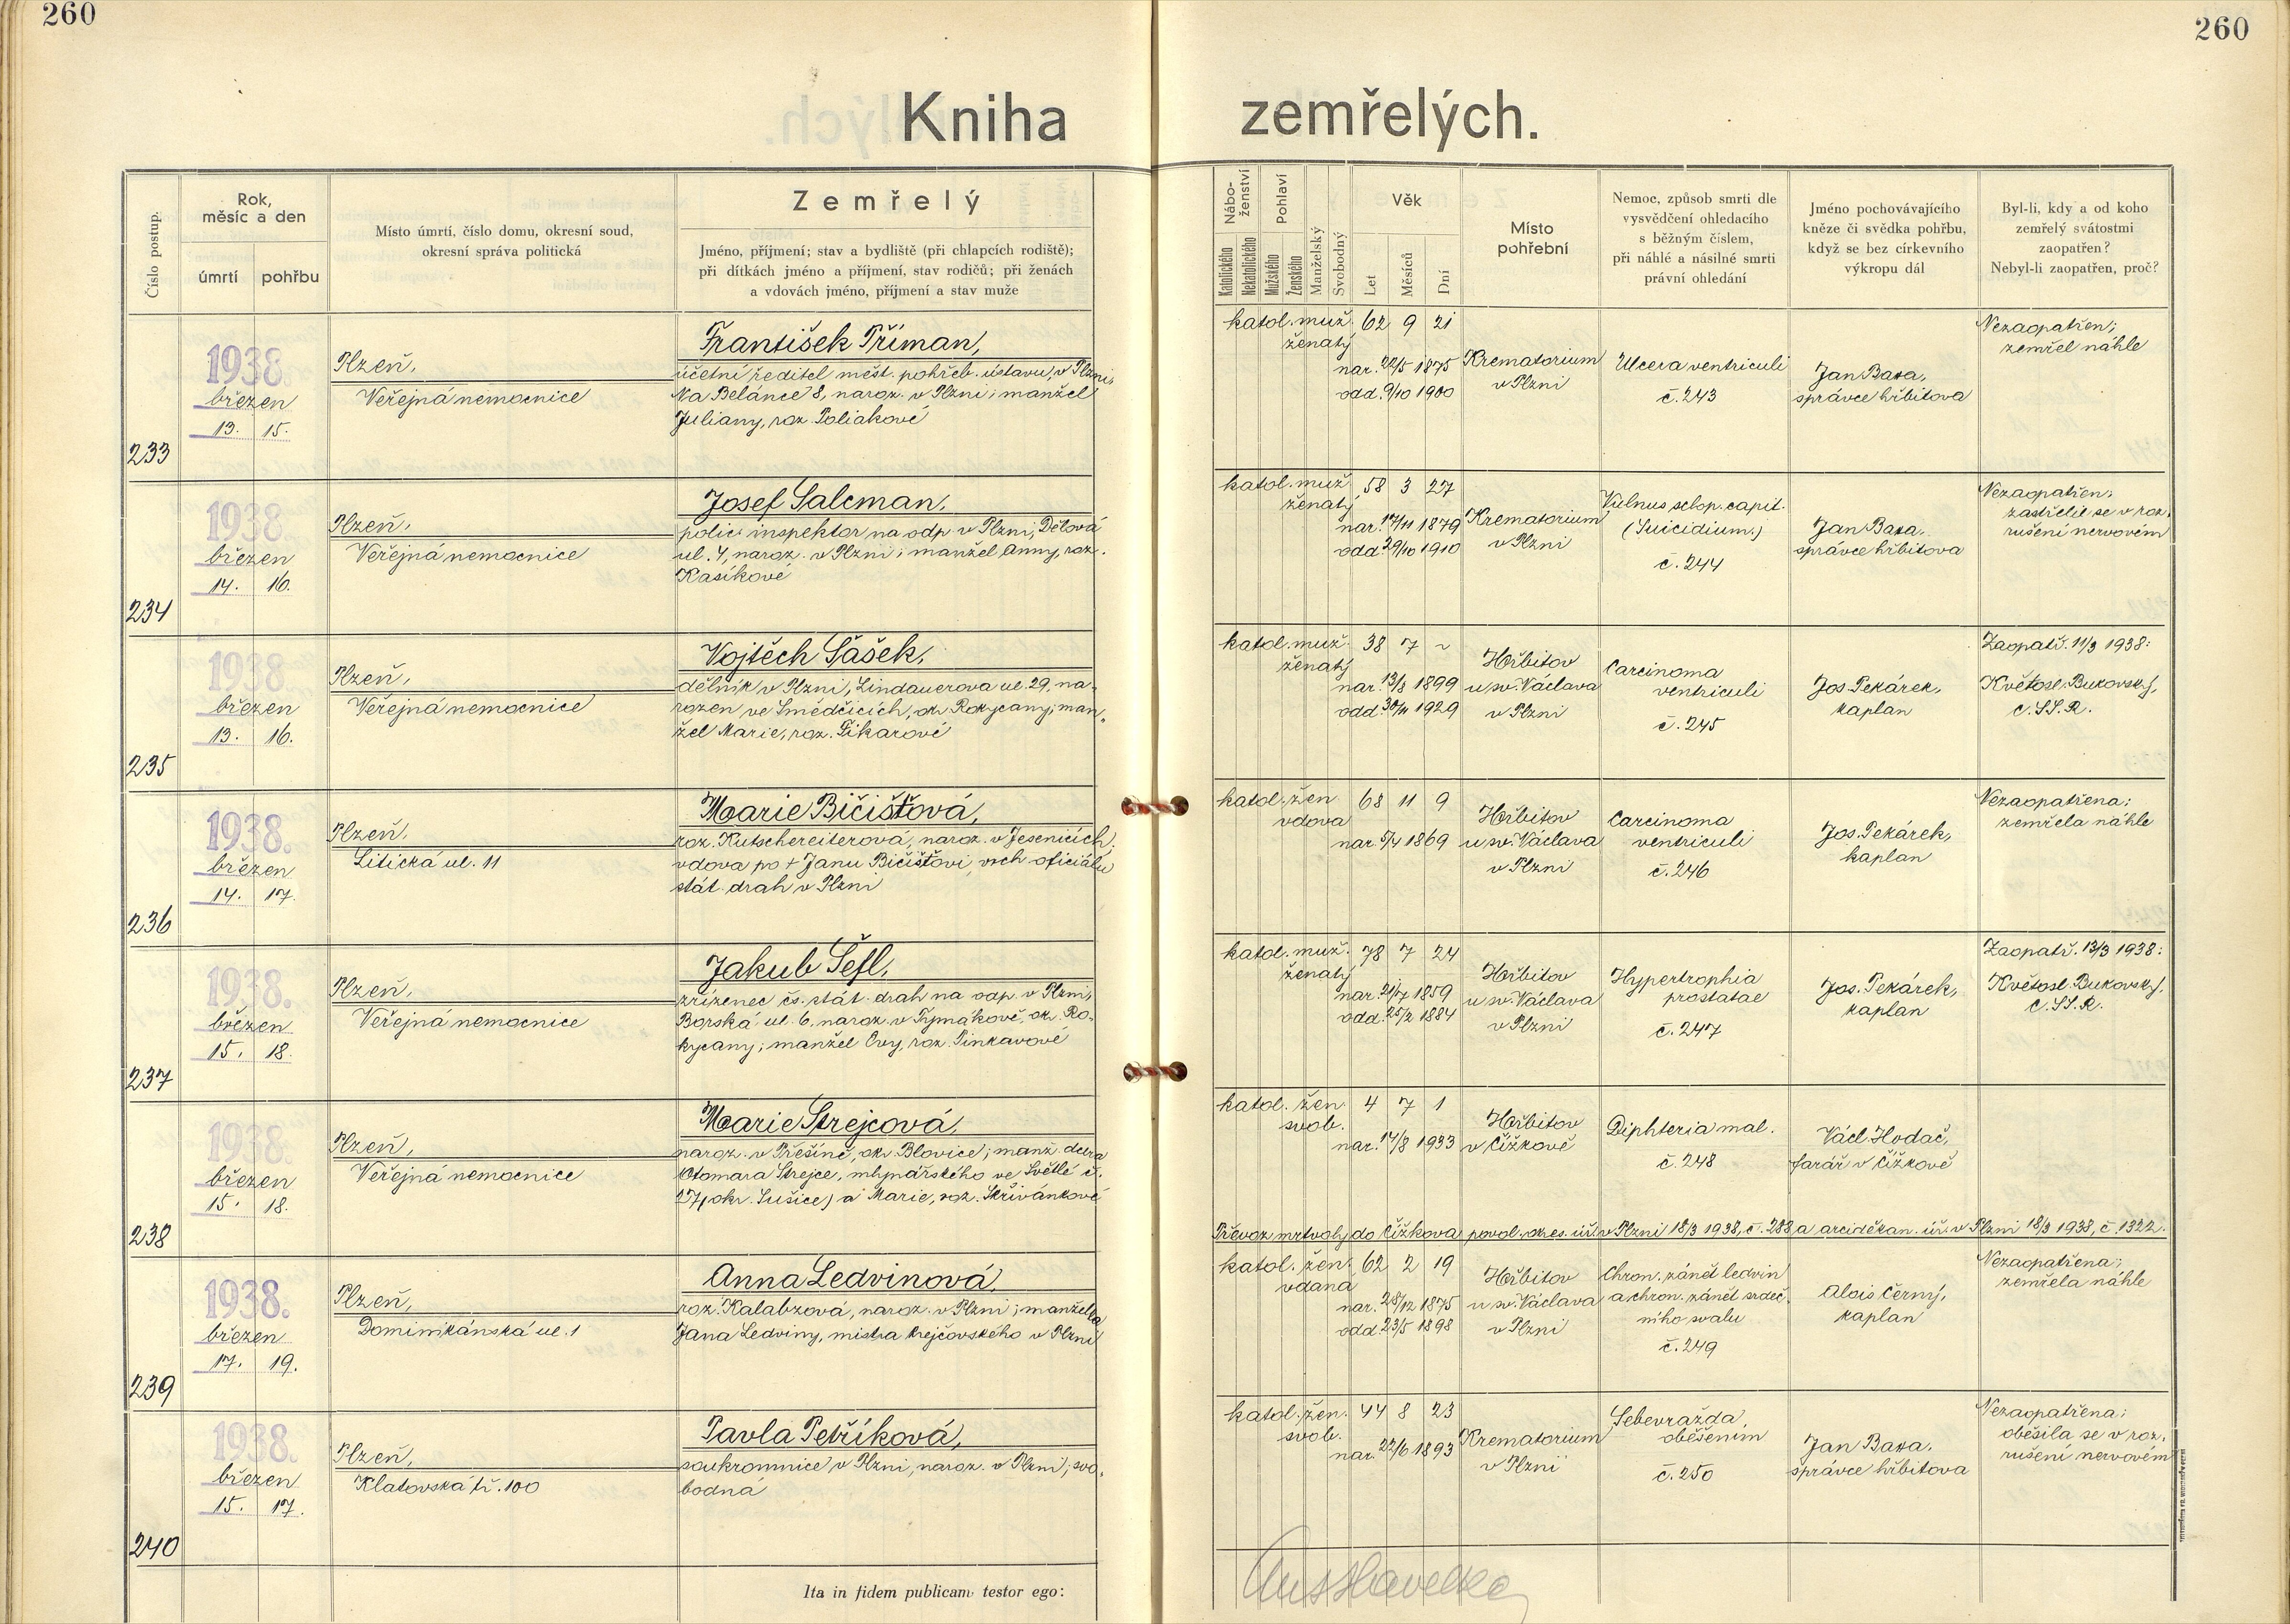 260
260
Kniha
zemřelých.
Číslo postup.
Rok,
měsíc a den
úmrtí
pohřbu
Místo úmrtí, číslo domu, okresní soud,
okresní správa politická
Zemřelý
Jméno, příjmení; stav a bydliště (při chlapcích rodiště);
při dítkách jméno a příjmení, stav rodičů; při ženách
a vdovách jméno, příjmení a stav muže
Nábo-
ženství
Katolického
Nekatolického
Pohlaví
Mužského
Ženského
Manželský
Svobodný
Věk
Let
Měsíců
Dní
Místo
pohřební
Nemoc, způsob smrti dle
vysvědčení ohledacího
s běžným číslem,
při náhlé a násilné smrti
právní ohledání
Jméno pochovávajícího
kněze či svědka pohřbu,
když se bez církevního
výkropu dál
Byl-li, kdy a od koho
zemřelý svátostmi
zaopatřen?
Nebyl-li zaopatřen, proč?
233
1938
březen
13. 15.
Plzeň,
Veřejná nemocnice
František Příman,
účetní ředitel měst. pohřeb. ústavu v Plzni,
Na Belánce 8, naroz. v Plzni; manžel
Juliany, roz. Poliakové
katol. muž. 62 9 21
ženatý
nar. 22/5 1875
odd. 9/10 1900
Krematorium
v Plzni
Ulcera ventriculi
č. 243
Jan Baxa,
správce hřbitova
Nezaopatřen;
zemřel náhle
234
1938
březen
14. 16.
Plzeň,
Veřejná nemocnice
Josef Salcman,
polic. inspektor na odp. v Plzni, Dělová
ul. 4, naroz. v Plzni; manžel Anny, roz.
Kasíkové
katol. muž. 58 3 27
ženatý
nar. 17/11 1879
odd. 29/10 1910
Krematorium
v Plzni
Vulnus sclop. capit.
(Suicidium.)
č. 244
Jan Baxa,
správce hřbitova
Nezaopatřen;
zastřelil se v roz.
rušení nervovém
235
1938
březen
13. 16.
Plzeň,
Veřejná nemocnice
Vojtěch Šašek,
dělník v Plzni, Lindauerova ul. 29, na-
rozen ve Smědčicích, okr. Rokycany; man-
žel Marie, roz. Šikarové
katol. muž. 38 7 ~
ženatý
nar. 13/8 1899
odd. 30/11 1929
Hřbitov
u sv. Václava
v Plzni
Carcinoma
ventriculi
č. 245
Jos. Pekárek,
kaplan
Zaopatř. 11/3 1938:
Květosl. Bukovský,
C. SS. R.
236
1938.
březen
14. 17.
Plzeň,
Litická ul. 11
Marie Bičišťová,
roz. Kutschereiterová, naroz. v Jesenicích,
vdova po † Janu Bičišťovi, vrch. oficiálu
stát. drah v Plzni
katol. žen. 68 11 9
vdova
nar. 5/4 1869
Hřbitov
u sv. Václava
v Plzni
Carcinoma
ventriculi
č. 246
Jos. Pekárek,
kaplan
Nezaopatřena;
zemřela náhle
237
1938.
březen
15. 18.
Plzeň,
Veřejná nemocnice
Jakub Šefl,
zřízenec čs. stát. drah na odp. v Plzni,
Borská ul. 6, naroz. v Tymákově, okr. Ro-
kycany; manžel Evy, roz. Pinkavové
katol. muž. 78 7 24
ženatý
nar. 21/7 1859
odd. 25/2 1884
Hřbitov
u sv. Václava
v Plzni
Hypertrophia
prostatae
č. 247
Jos. Pekárek,
kaplan
Zaopatř. 13/3 1938:
Květosl. Bukovský,
C. SS. R.
238
1938.
březen
15. 18.
Plzeň,
Veřejná nemocnice
Marie Strejcová,
naroz. v Přešíně, okr. Blovice; manž. dcera
Otomara Strejce, mlynářského ve Světlé č.
27 (okr. Sušice) a Marie, roz. Skřivánkové
katol. žen. 4 7 1
svob.
nar. 14/8 1933
Hřbitov
v Čížkově
Diphteria mal.
č. 248
Václ. Hodač,
farář v Čížkově
Převoz mrtvoly do Čížkova povol. okres. úř. v Plzni 18/3 1938, č. 288 a arciděkan. úř. v Plzni 18/3 1938, č. 1322.
239
1938.
březen
17. 19.
Plzeň,
Dominikánská ul. 1
Anna Ledvinová,
roz. Kalabzová, naroz. v Plzni; manželka
Jana Ledviny, mistra krejčovského v Plzni
katol. žen. 62 2 19
vdaná
nar. 28/12 1875
odd. 23/5 1898
Hřbitov
u sv. Václava
v Plzni
Chron. zánět ledvin
a chron. zánět srdeč-
ního svalu
č. 249
Alois Černý,
kaplan
Nezaopatřena;
zemřela náhle
240
1938.
březen
15. 17.
Plzeň,
Klatovská tř. 100
Pavla Petříková,
soukromnice v Plzni, naroz. v Plzni; svo-
bodná
katol. žen. 44 8 23
svob.
nar. 22/6 1893
Krematorium
v Plzni
Sebevražda
oběšením
č. 250
Jan Baxa,
správce hřbitova
Nezaopatřena;
oběsila se v roz.
rušení nervovém
Ita in fidem publicam testor ego: